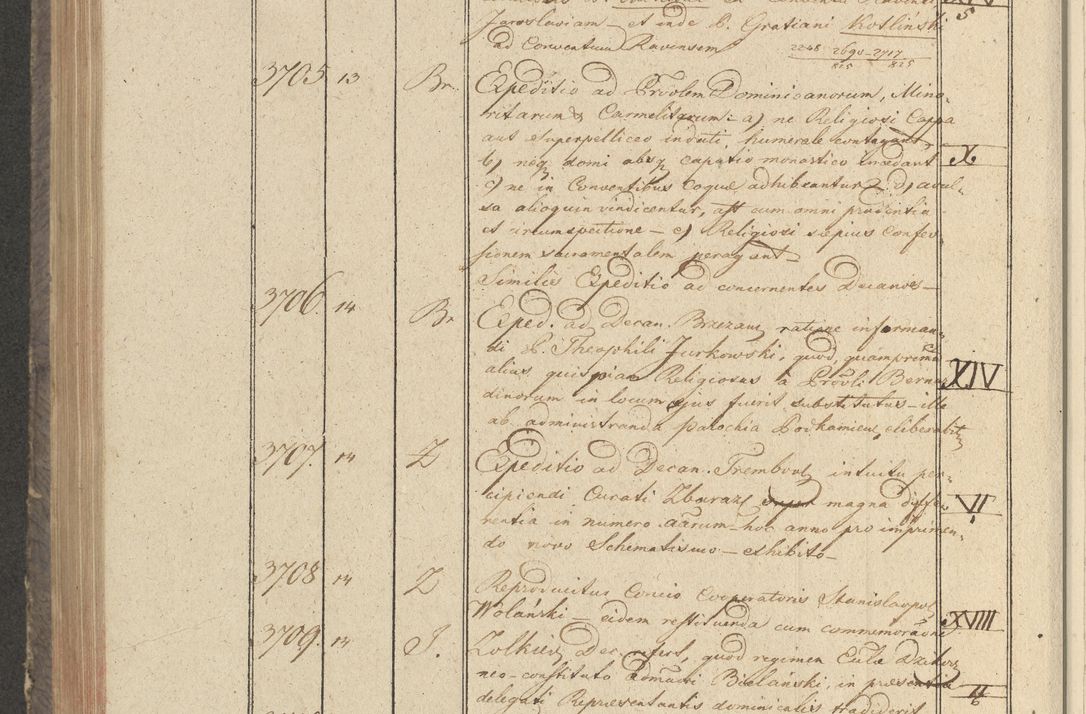 Jaroslaviam – et inde P. Gratiani Kotliński 5
ad Conventum Ravensem 2248 2690–2717
825 825
3705 13 Br. Expeditio ad Provlem Dominicanorum, Mino-
ritarum & Carmelitarum: a) ne Religiosi Cappa
aut Superpelliceo induti, humerale contegant,
b) neq domi absq caputio monastico incedant X
c) ne in Conventibus Coquae adhibeantur d) avul-
sa alioquin vindicentur, ast cum omni prudentia
et circumspectione – e) Religiosi saepius Confes-
sionem sacramentalem peragant –
Similis Expeditio ad concernentes Decanos –
3706. 14 Br Exped. ad Decan. Brzezan, ratione informan-
di P. Theophili Jurkowski, quod, quamprimum
alius quispiam Religiosus a Provli Bernar- XIV
dinorum in locum ejus fuerit substitutus – ille
ab administranda parochia Boćkamien, eliberabitur
3707. 14 Z Expeditio ad Decan. Trembovl, intuitu per-
cipiendi Curati Zbaraz magna diffe- VI
rentia in numero aarum hoc anno pro imprimen-
do novo Schematismo – exhibito –
3708 14 Z Reproducitur Concio Cooperatoris Stanislaopol
Wolański – eidem restituenda cum commemoraōne XVIII
3709. 14 J. Zolkiew, Dec. refert, quod regimen Eulae
neo-constituto Romano Bielański, in praesentia II
delegati Repraesentantis dominicalis tradiderit